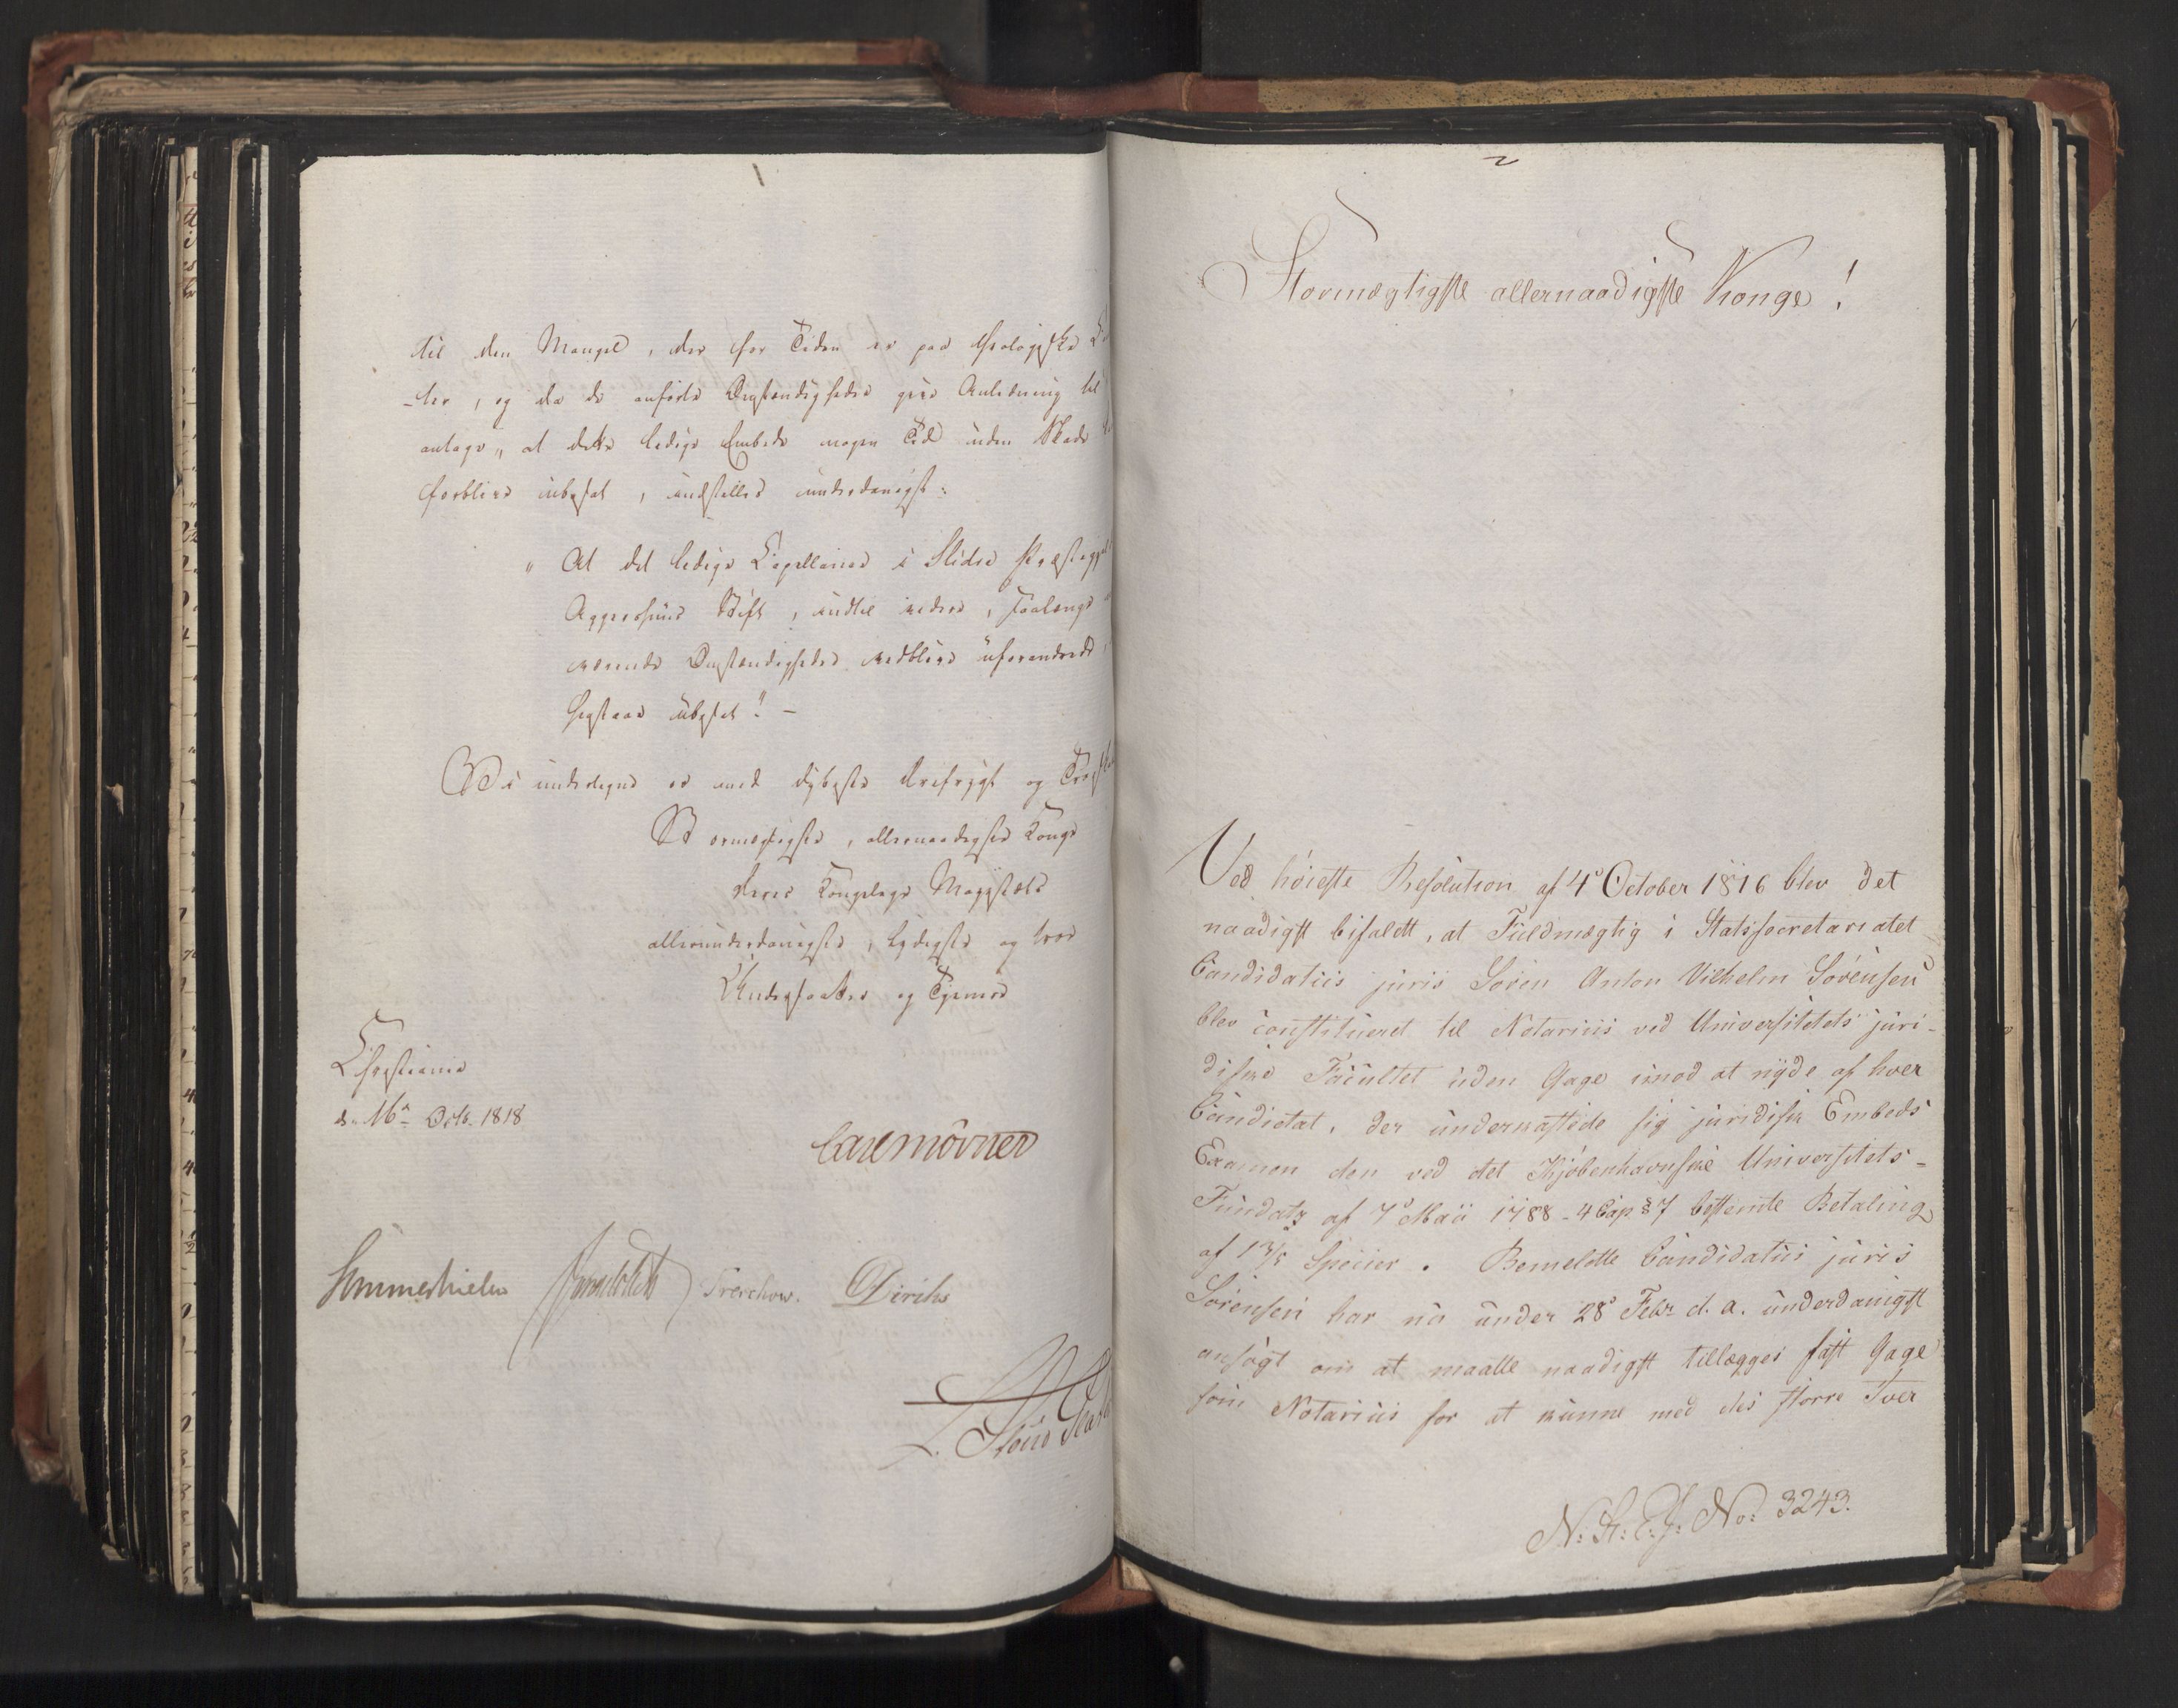 til den Mangel, der for Tiden er paa theologiske
-ter, og da de anførte Omstændigheder give Anledning til
antage, at dette ledige Embede nogen Tid uden Skade
forblive ubesat, indstilles underdanigst:
"At det ledige Capellanie i Slidre Præstegjeld
Aggershuus Stift, indtil videre, saalænge
værende Omstændigheder vedblive uforandrede,
henstaae ubesat!" -
Vi undertegne os med dybeste Ærefrygt og Troskab
Stormægtigste, allernaadigste Konge
Deres Kongelige Majestæts
allerunderdanigste, lydigste og troe
Undersaatter og Tjenere
Christiania
d. 16de Octb. 1818
Carl Mörner
Sommerhielm Treschow. Diriks
2
Stormægtigste allernaadigste Konge!
Ved høieste Resolution af 4de October 1816 blev det
naadigst bifaldt, at Fuldmægtig i Statssecretariatet
Candidatus juris Søren Anton Vilhelm Sørensen
blev constitueret til Notarius ved Universitetets juri-
diske Facultet uden Gage imod at nyde af hver
Candidat, der underkastede sig juridisk Embeds
Examen den ved det Kjøbenhavnske Universitets-
Fundatz af 7de Maii 1788 - 4 Cap § 7 bestemte Betaling
af 1 3/5 Specier. Bemeldte Candidatus juris
Sørensen har nu under 28de Febr d. a. underdanigst
ansøgt om at maatte naadigst tillægges fast Gage
som Notarius for at kunne med des større Iver
No: 3243.